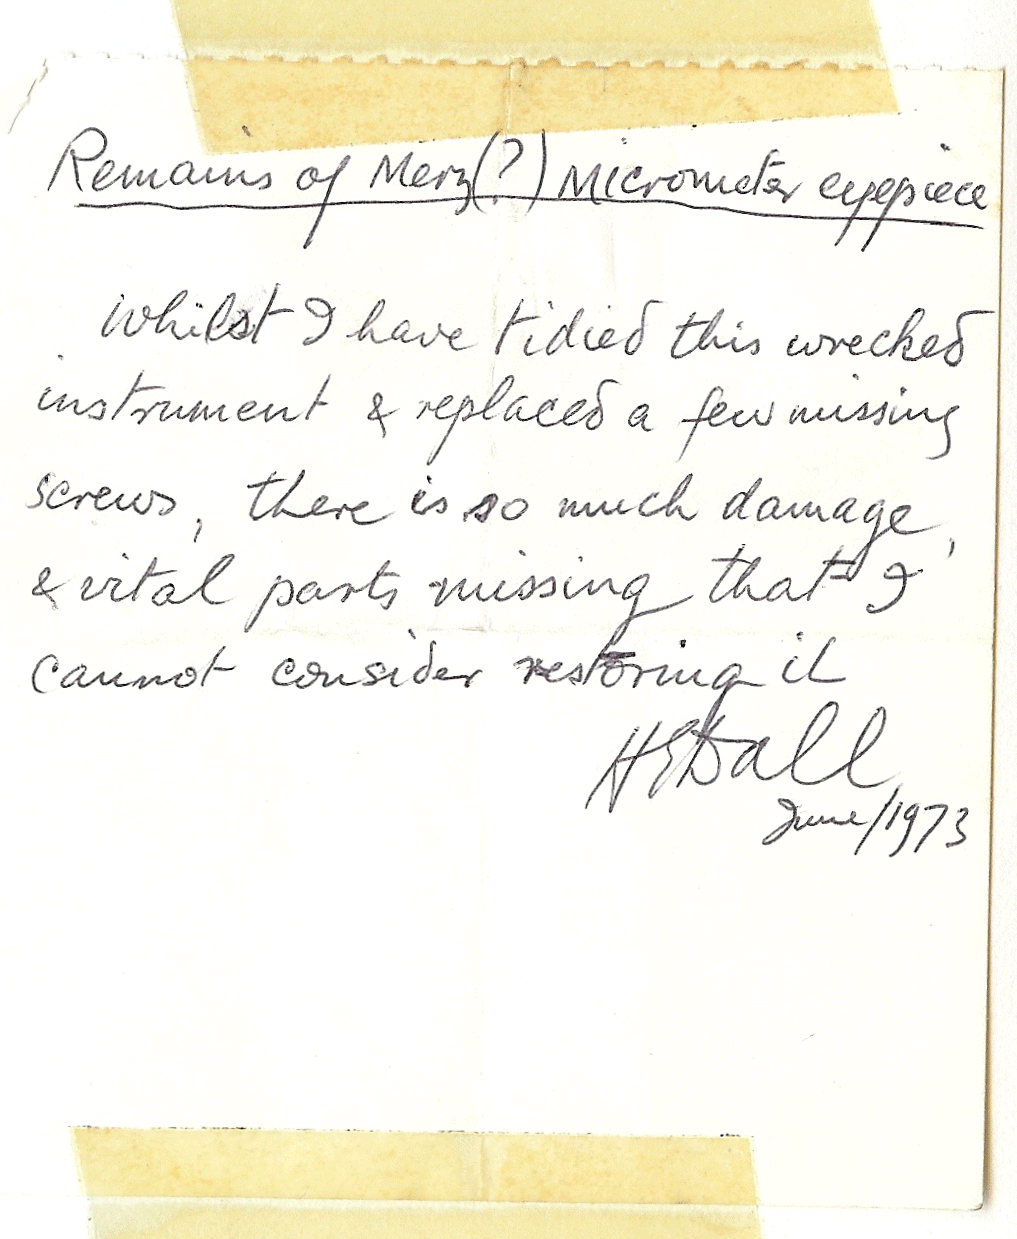 Remains of Merz(?) Micrometer eyepiece
Whilst I have tidied this wrecked
instrument & replaced a few missing
screws, there is so much damage,
& vital parts missing that I
cannot consider restoring it
HEDall
June/1973